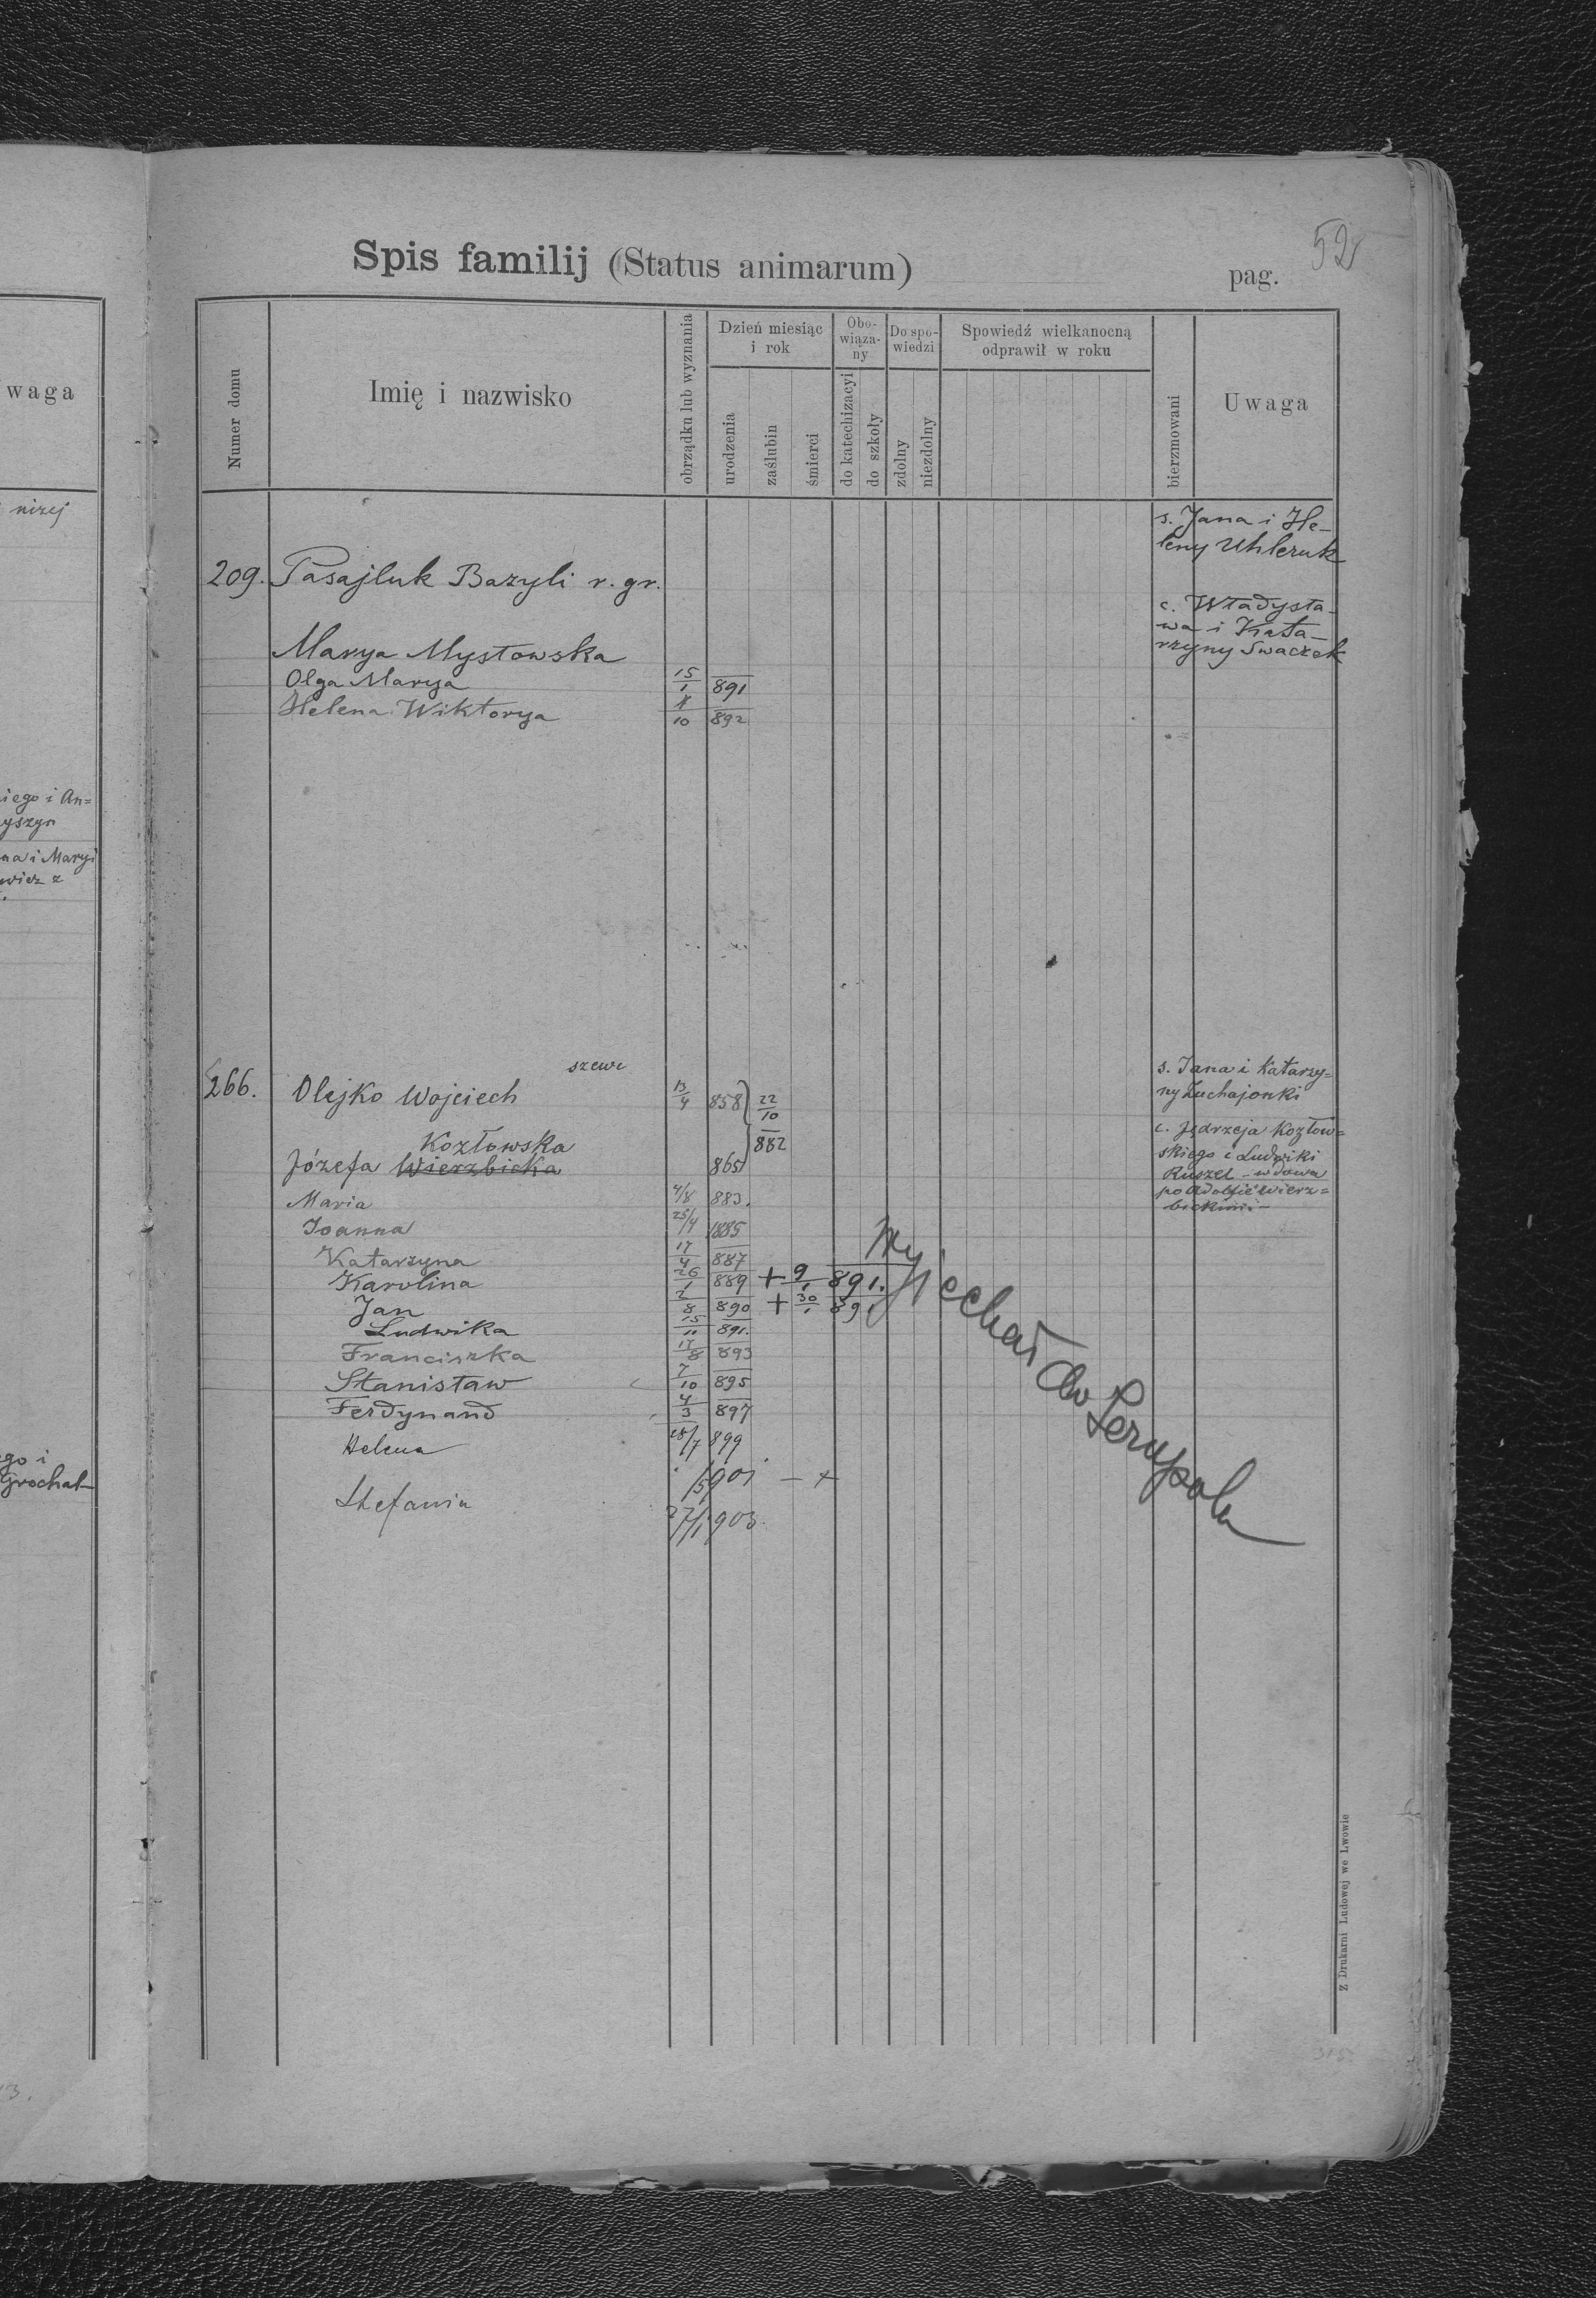 52
Spis familij (Status animarum)
pag.
waga
Numer domu
Imię i nazwisko
obrządku lub wyznania
Dzień miesiąc i rok
urodzenia
zaślubin
śmierci
Obo-
wiąza-
ny
do katechizacyi
do szkoły
Do spo-
wiedzi
zdolny
niezdolny
Spowiedź wielkanocną
odprawił w roku
bierzmowani
Uwaga
niżej
s. Jana i He-
leny Uhleruk
209. Pasajluk Bazyli r. gr.
c. Władysła-
wa i Kata-
rzyny Swaczek
Marya Mysłowska
Olga Marya 15/1 891
Helena Wiktorya 10 892
iego i An=
yszyn
na i Maryi
wicz z
szewc
266. Olejko Wojciech 13/4 858 22/10 882
s. Jana i Katarzy=
ny Łuchajonki
Kozłowska
Józefa Wierzbicka 865
c. Jędrzeja Kozłow=
skiego i Ludwiki
Ruszel - wdowa
po Adolfie Wierz=
bickim -
Maria 4/8 883.
Joanna 25/4 1885
Katarzyna 17/4 887
Karolina 26/1 889 + 9/1 891.
Jan 2/8 890 + 30/1 891
Ludwika 15/11 891.
Franciszka 17/8 893
Stanisław 7/10 895
Ferdynand 4/3 897
Helena 28/7 899
/5 901 - +
Stefania 27/1 903.
Wyjechał do
go i
Grochal-
Z Drukarni Ludowej we Lwowie
315
13.